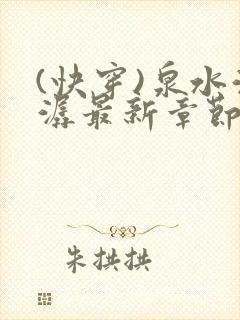 (快穿)泉水
潺最新章節
朱拱拱